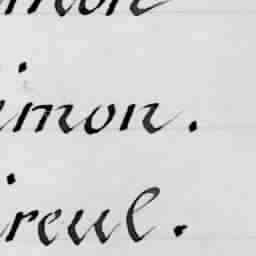 imon.
ireul.